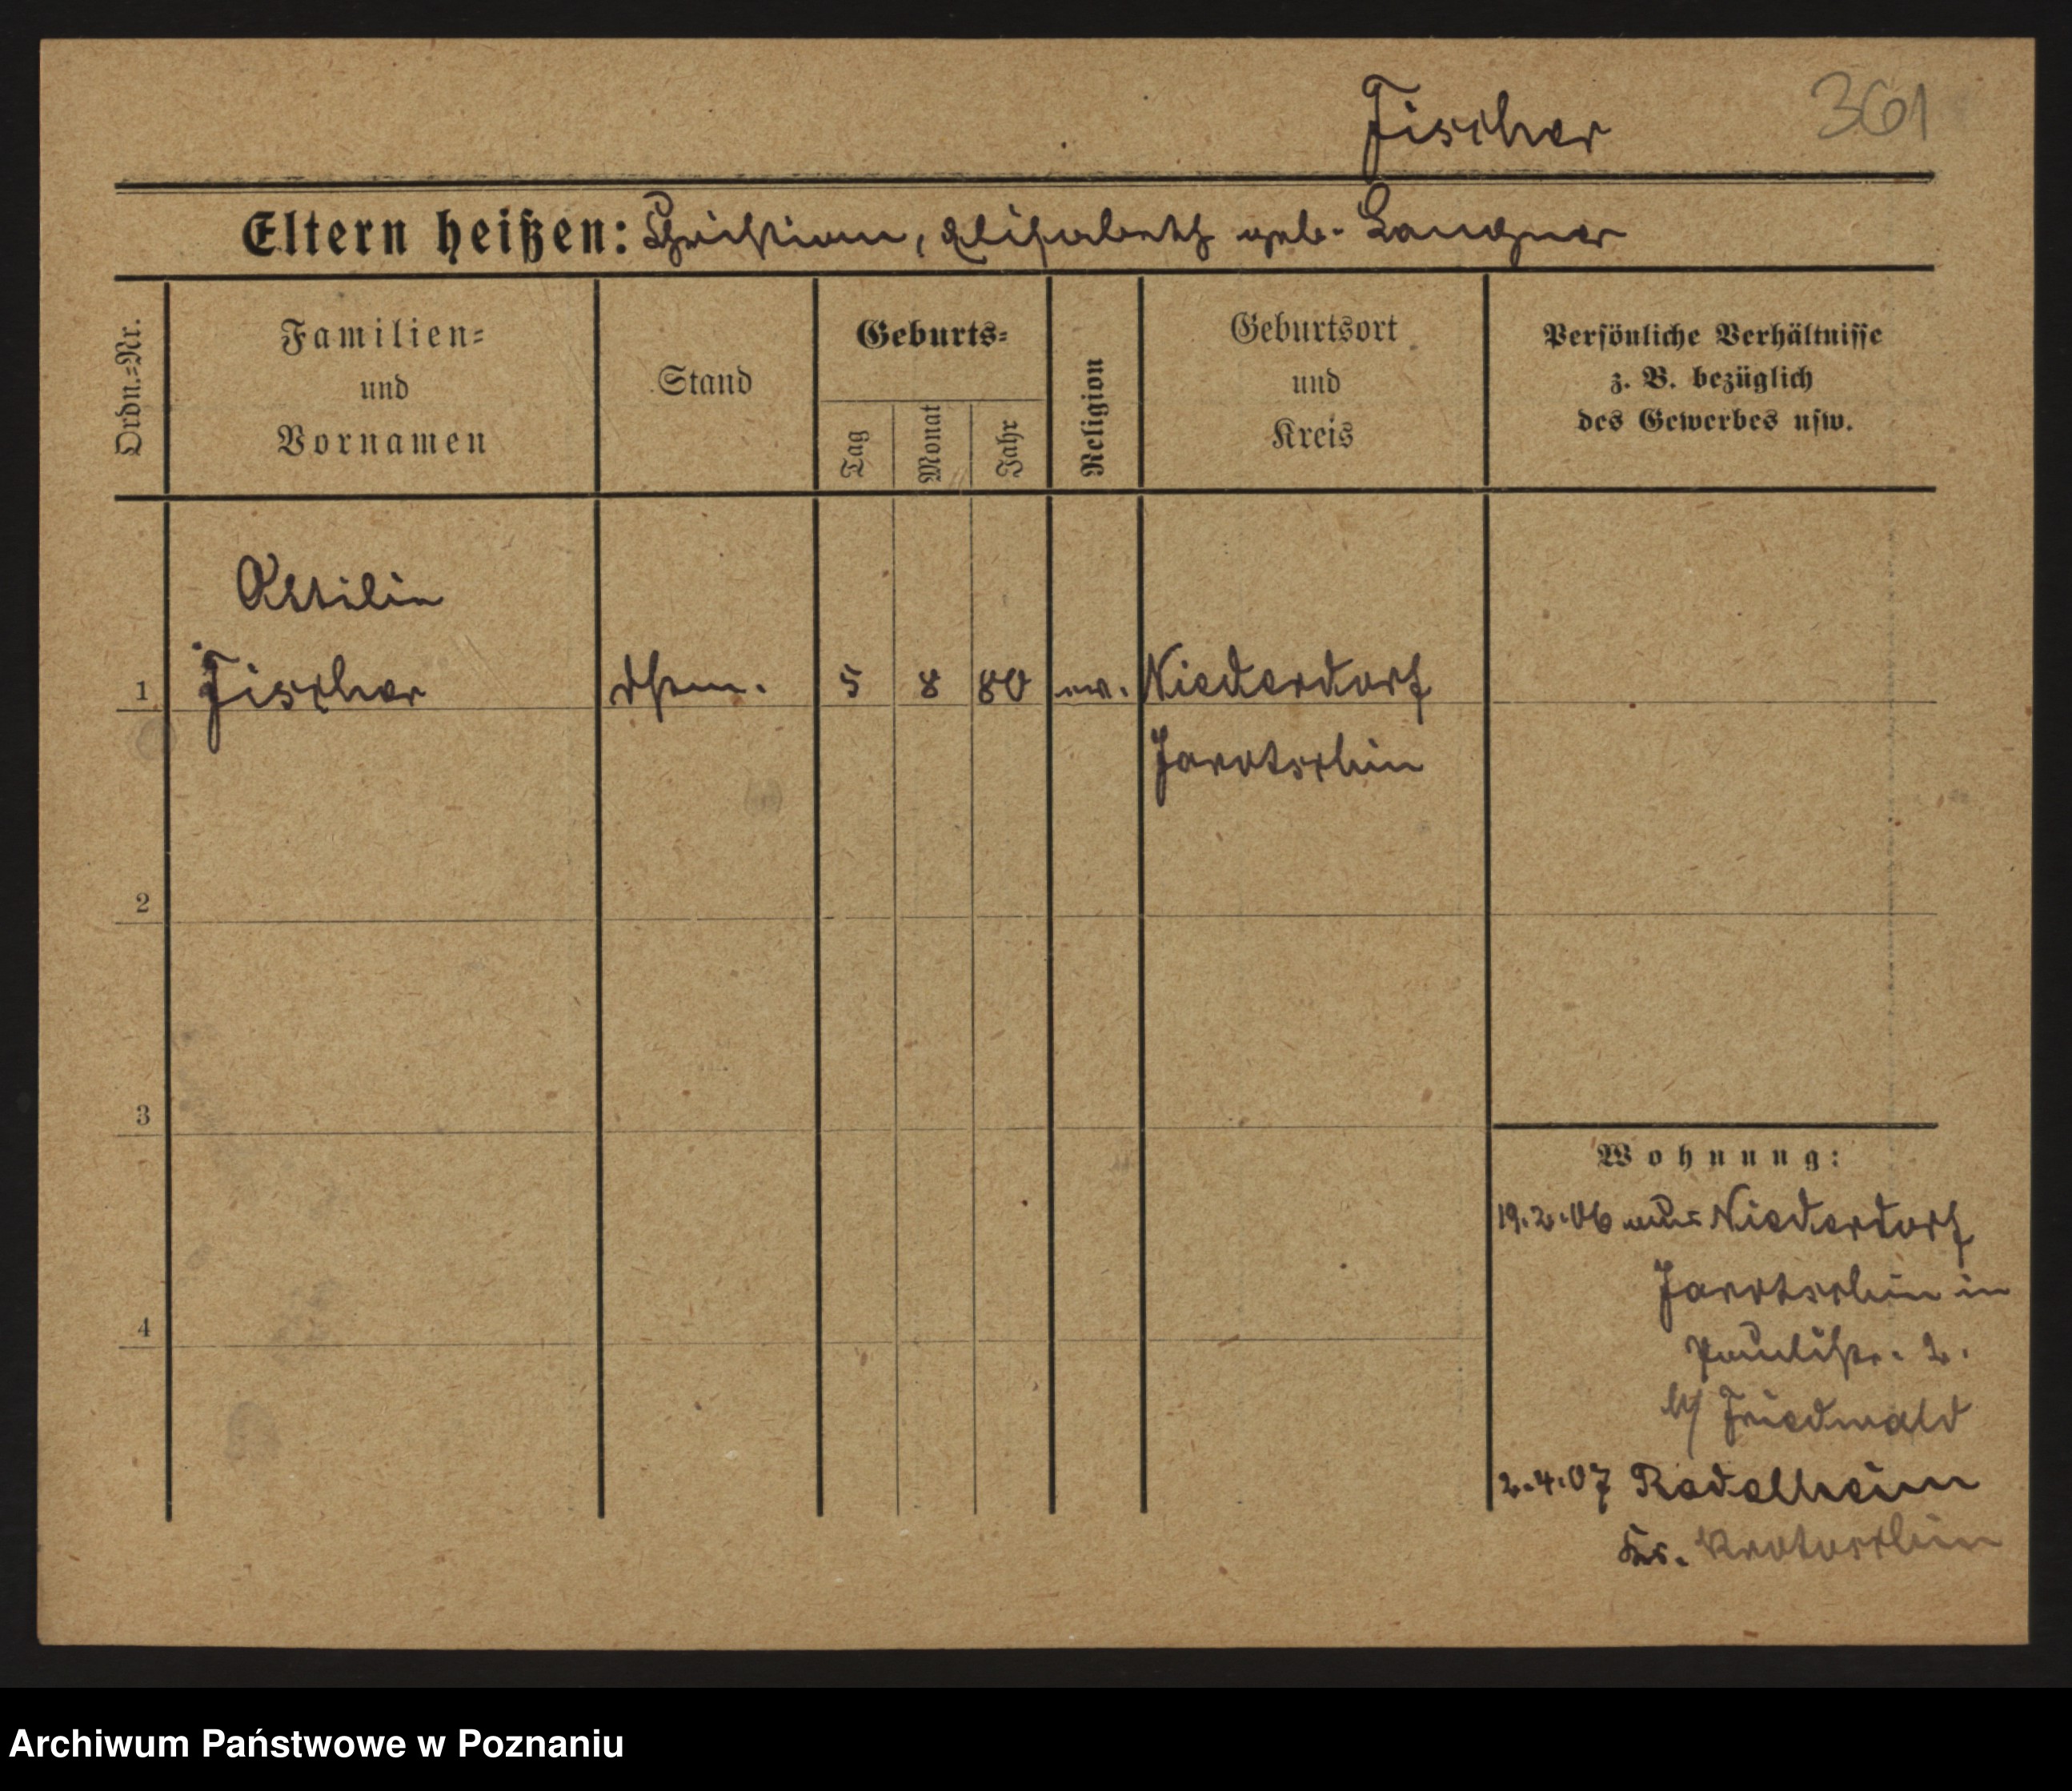 Fischer 361
Eltern heißen: Christian, Elisabeth geb. Langner
Ordn.=Nr.
Familien=
und
Vornamen
Stand
Geburts=
Tag
Monat
Jahr
Religion
Geburtsort
und
Kreis
Persönliche Verhältnisse
z. B. bezüglich
des Gewerbes usw.
Ottilie
1 Fischer 5 8 80 ev. Niederdorf
Jarotschin
2
3
4
Wohnung:
19.2.06 aus Niederdorf
Jarotschin in
Paulistr. 2.
b/ Friedwald
2.4.07 Radelheim
Kr. Krotoschin
Archiwum Państwowe w Poznaniu